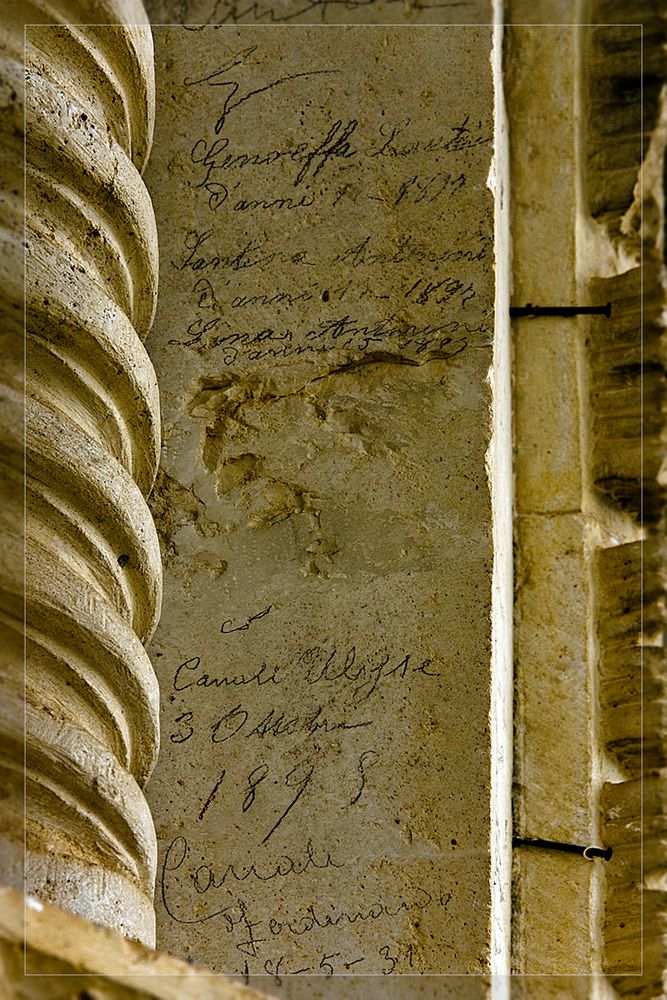 Genoeffa
d'anni 1 - 1893
Santina Antonioni
d'anni 12 - 1893
Lina Antonioni
d'anni 15 1893
Canali Ulysse
3 Ottobre
1898
Canali
Ferdinando
18-5-31